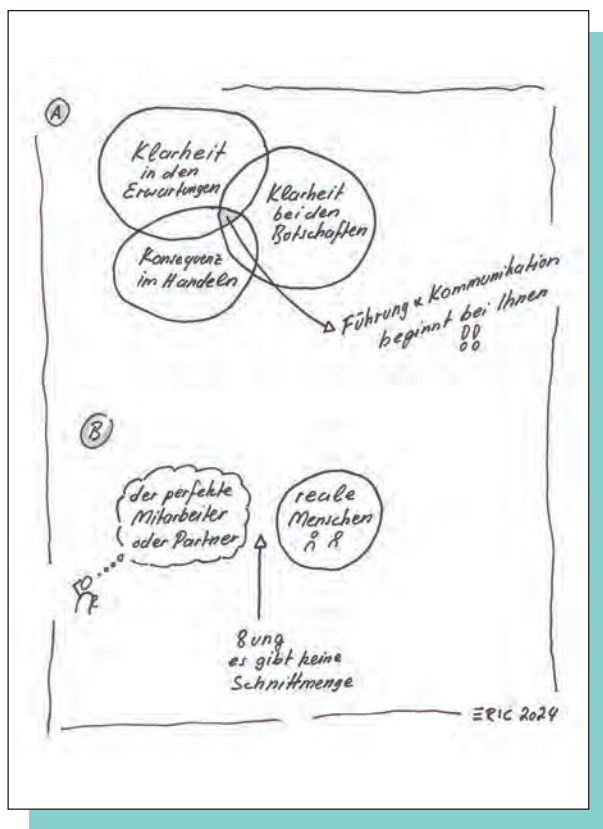 A
Klarheit
in den
Erwartungen
Klarheit
bei den
Botschaften
Konsequenz
im Handeln
Führung & Kommunikation
beginnt bei Ihnen
!!
B
der perfekte
Mitarbeiter
oder Partner
reale
Menschen
8ung
es gibt keine
Schnittmenge
ERIC 2024